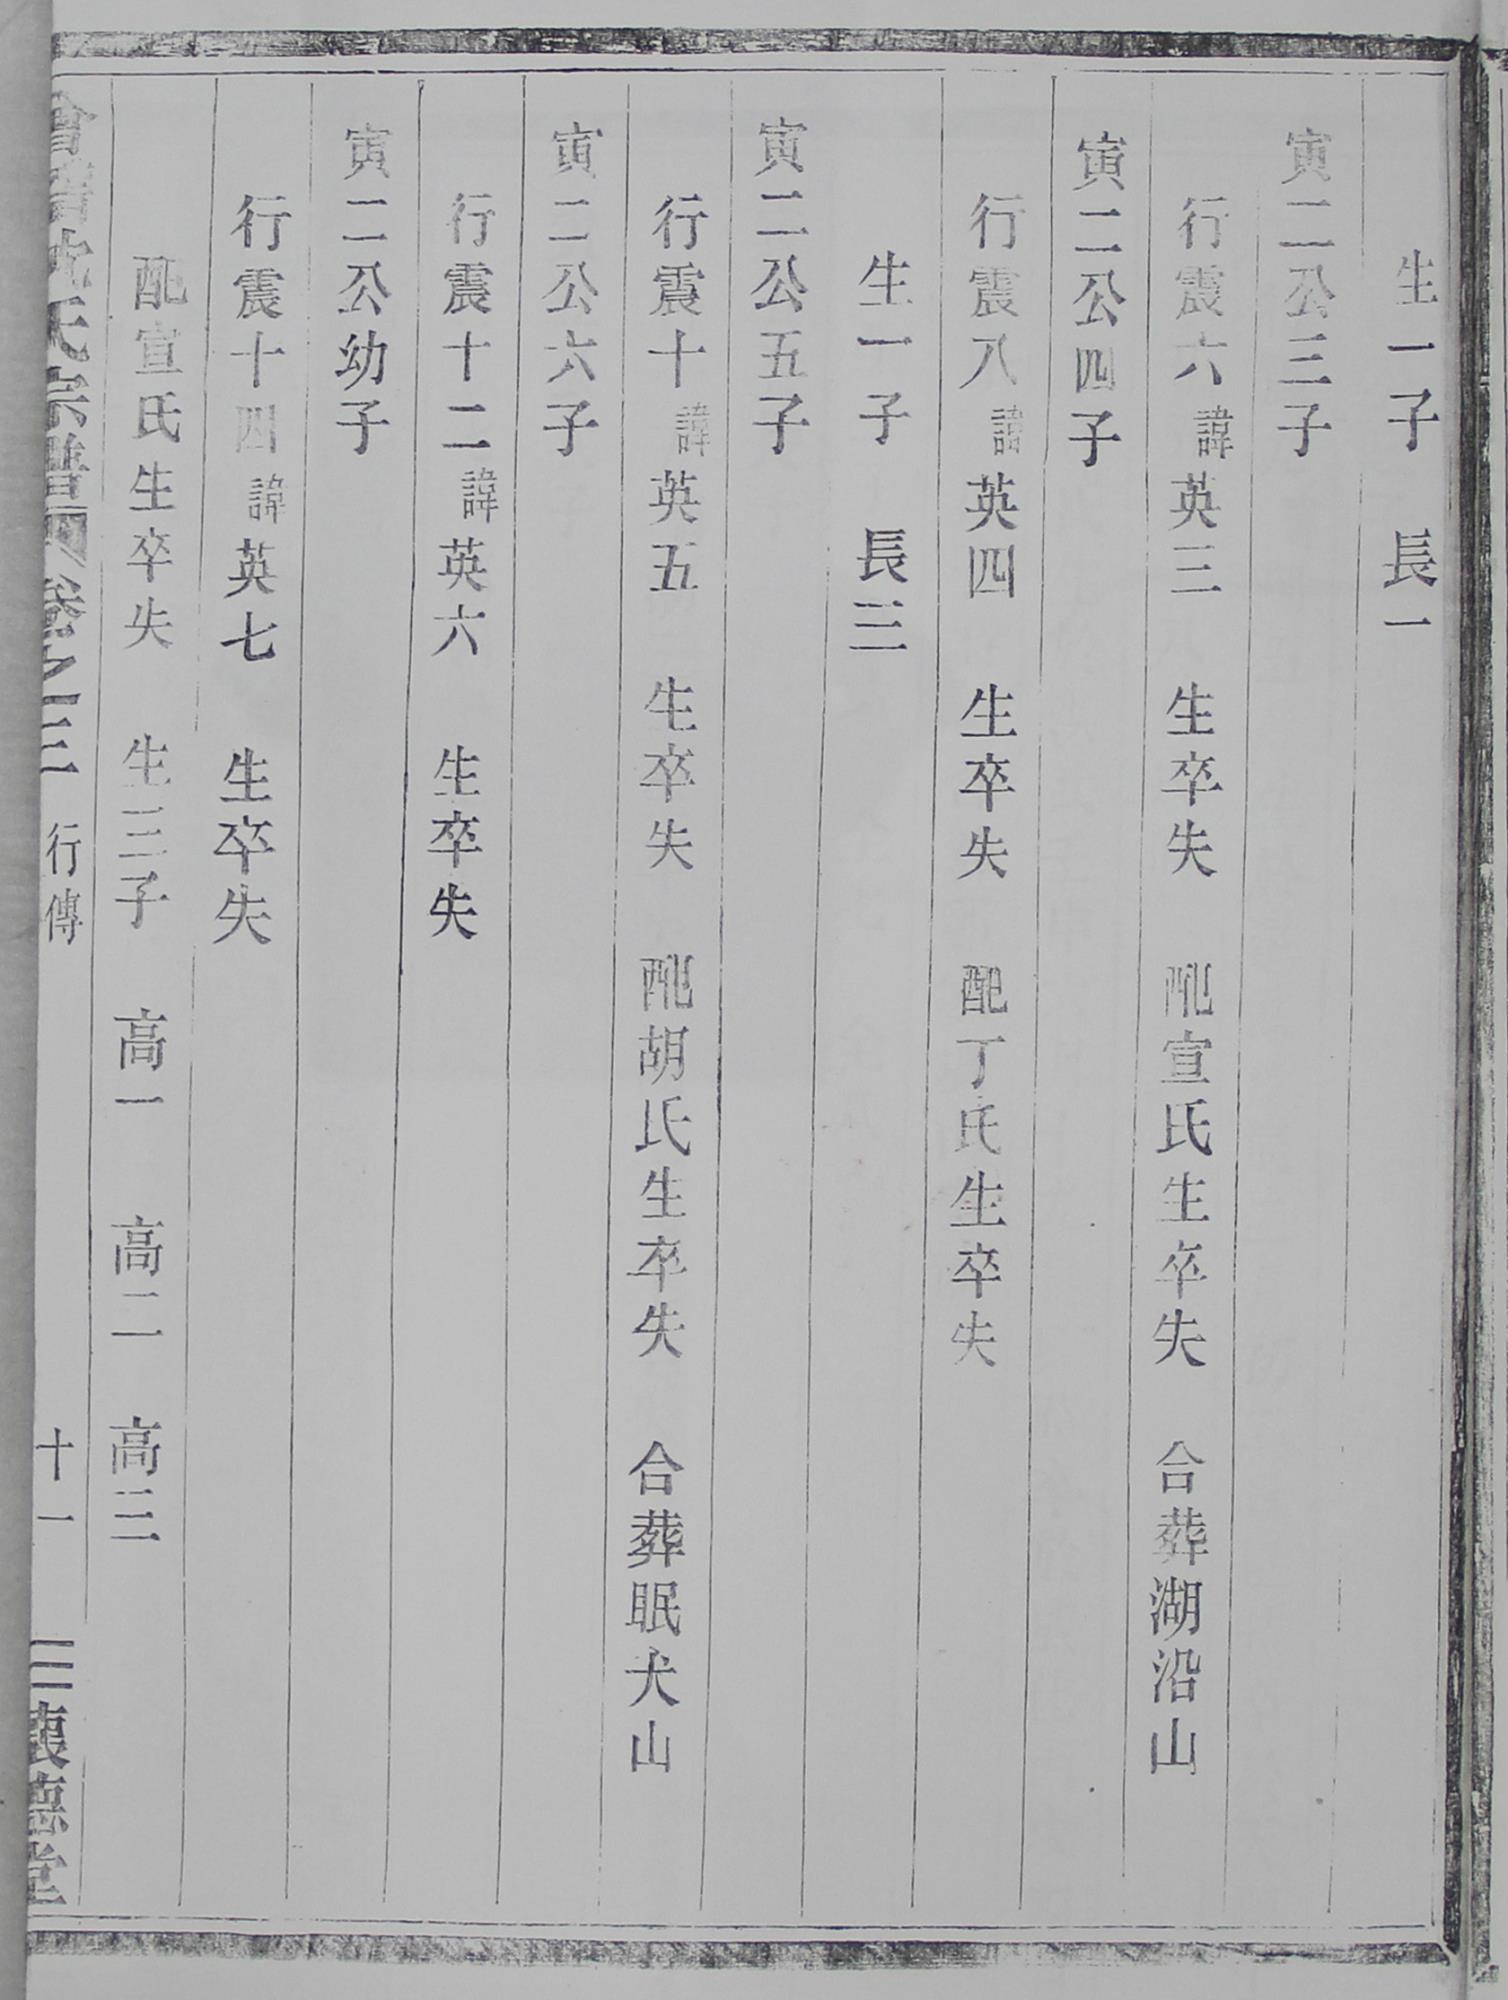 生一子　長一
寅二公三子
行震六諱英三　生卒失　配宣氏生卒失　合葬湖沿山
寅二公四子
行震八諱英四　生卒失　配丁氏生卒失
生一子　長三
寅二公五子
行震十諱英五　生卒失　配胡氏生卒失　合葬眠犬山
寅二公六子
行震十二諱英六　生卒失
寅二公幼子
行震十四諱英七　生卒失
配宣氏生卒失　生三子　高一　高二　高三
會稽沈氏宗譜　卷之三　行傳　十一　懷德堂